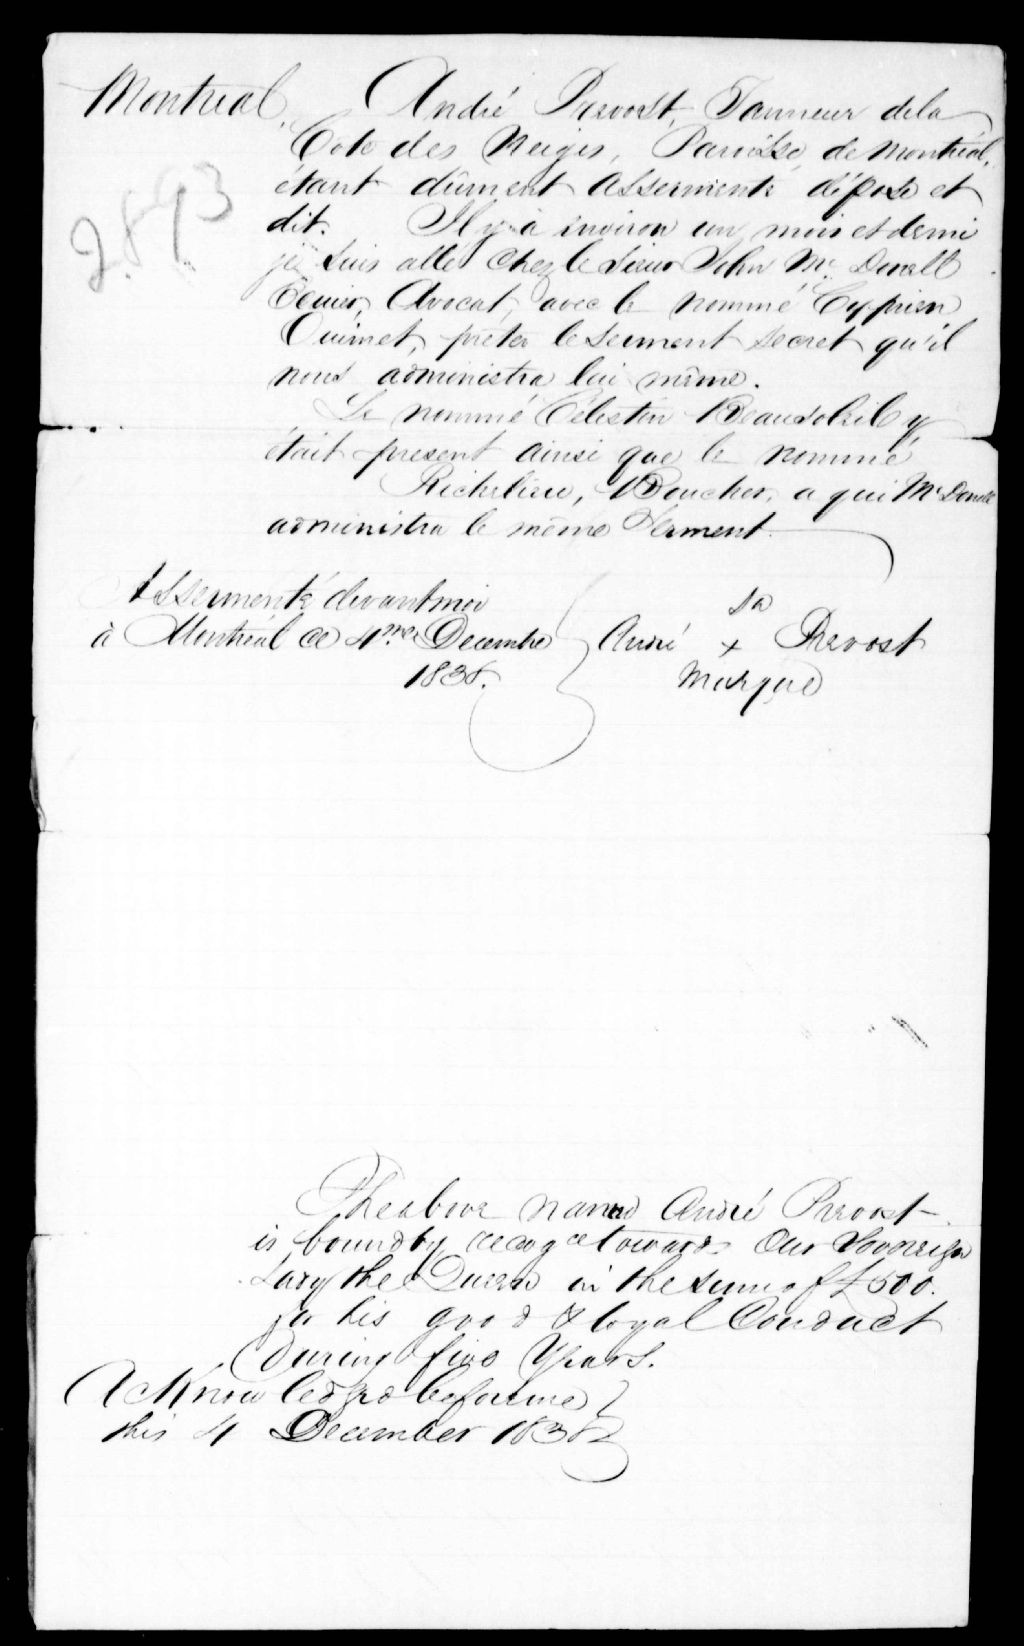 Montreal, André Prevost, Tanneur de la
Cote des Neiges, Paroisse de Montréal,
2893
étant dûment assermenté dépose et
dit. Il y à environ un mois et demi
je suis allé chez le Sieur John McDonell
Ecuier, Avocat, avec le nommé Cyprien
Ouimet, preter le serment secret qu'il
nous administra lui même.
Le nommé Célestin Beausoleil y
était present ainsi que le nommé
Richelieu, Boucher, a qui McDonell
administra le même Serment.
Assermenté devant moi
à Montréal ce 4me Decembre
1838.
sa
André x Prevost
Marque
The above named André Prevost
is bound by recogce towards Our Sovereign
Lady the Queen in the sum of £500.
for his good & loyal Conduct
During five Years.
Acknowledged before me
this 4 December 1838